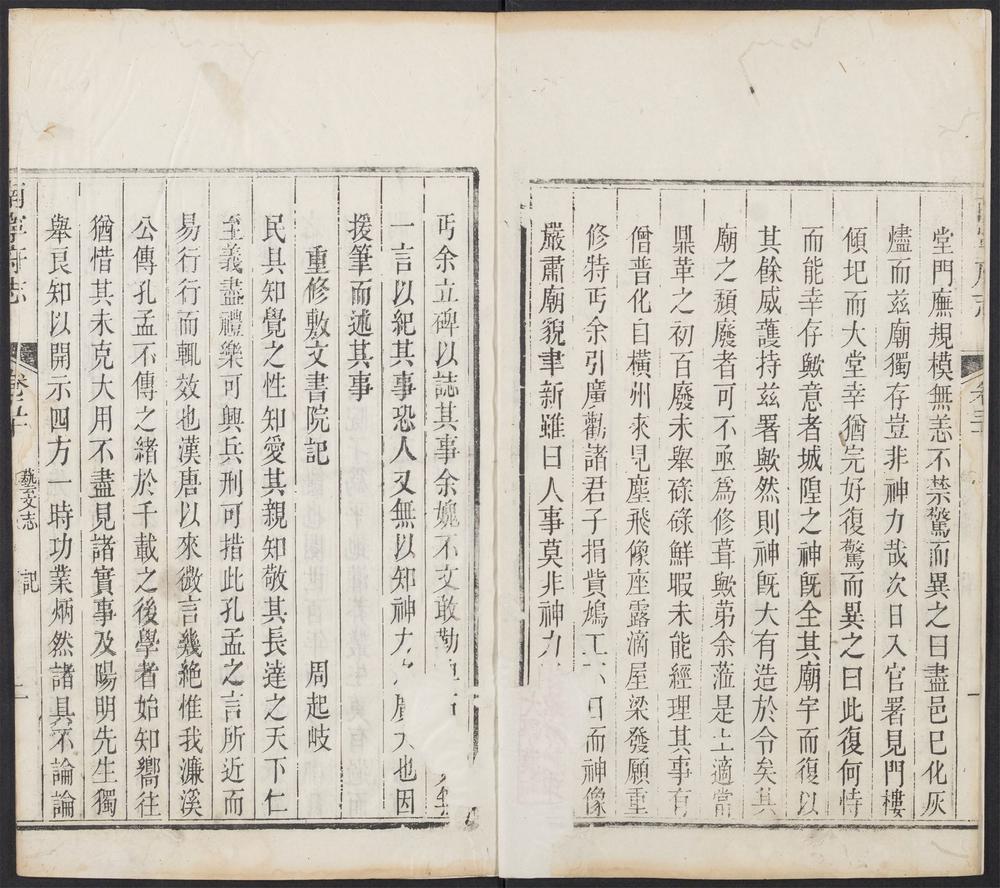 堂門廡規模無恙不禁驚而異之曰盡邑已化灰
燼而茲廟獨存豈非神力哉次日入官署見門樓
傾圮而大堂幸猶完好復驚而異之曰此復何恃
而能幸存歟意者城隍之神旣全其廟宇而復以
其餘威護持茲署歟然則神旣大有造於令矣其
廟之頽廢者可不亟爲修葺歟苐余蒞是土適當
鼎革之初百廢未舉碌碌鮮暇未能經理其事有
僧普化自橫州來見塵飛像座露滴屋梁發願重
修特丐余引廣勸諸君子捐貲鳩工 而神像
嚴肅廟貌聿新雖曰人事莫非神力
丐余立碑以誌其事余媿不文敢勒
一言以紀其事恐人又無以知神力 也因
援筆而述其事
重修敷文書院記 周起岐
民具知覺之性知愛其親知敬其長達之天下仁
至義盡禮樂可興兵刑可措此孔孟之言所近而
易行行而輒效也漢唐以來微言幾絕惟我濂溪
公傳孔孟不傳之緒於千載之後學者始知嚮往
猶惜其未克大用不盡見諸實事及陽明先生獨
舉良知以開示四方一時功業炳然諸具不論論
南寧府志 卷之 藝文志 記